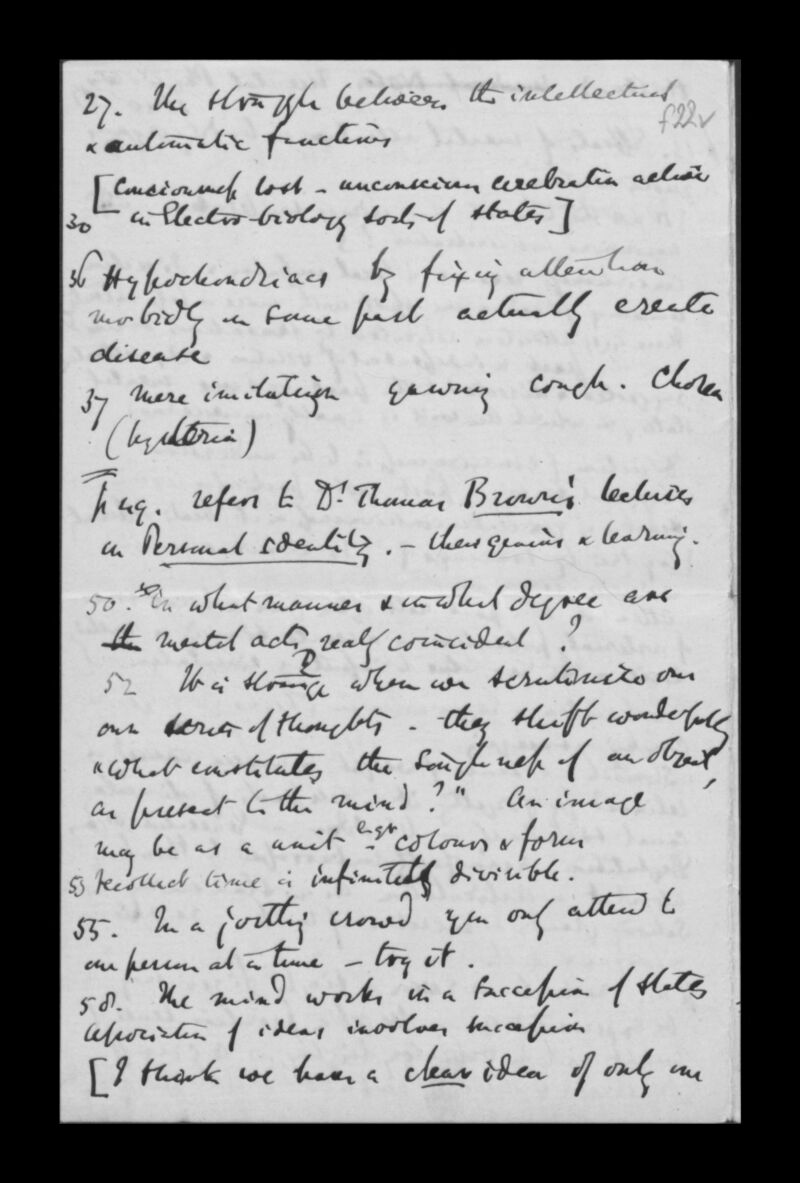 27. The struggle between the intellectual
f22v
& automatic functions
[Consciousness lost - unconscious cerebration action
30 in Electro-biology sorts of states]
36 Hypochondriacs by fixing attention
morbidly on some part actually create
disease
37 mere imitation yawning cough. Chorea
(hysteria)
refers to Dr Thomas Brown's lectures
on Personal identity. - then genius & learning.
50. In what manner & in what degree are
the mental acts really coincident?
52 It is strange when we scrutinize our
own series of thoughts - they shift wonderfully
& what constitutes the singleness of an object,
as present to the mind?" An image
may be as a unit - eg colours & form
53 recollect time is infinitely divisible.
55. In a jostling crowd you only attend to
one person at a time - try it.
58. The mind works in a succession of states
association of ideas involves succession
[I think we have a clear idea of only one